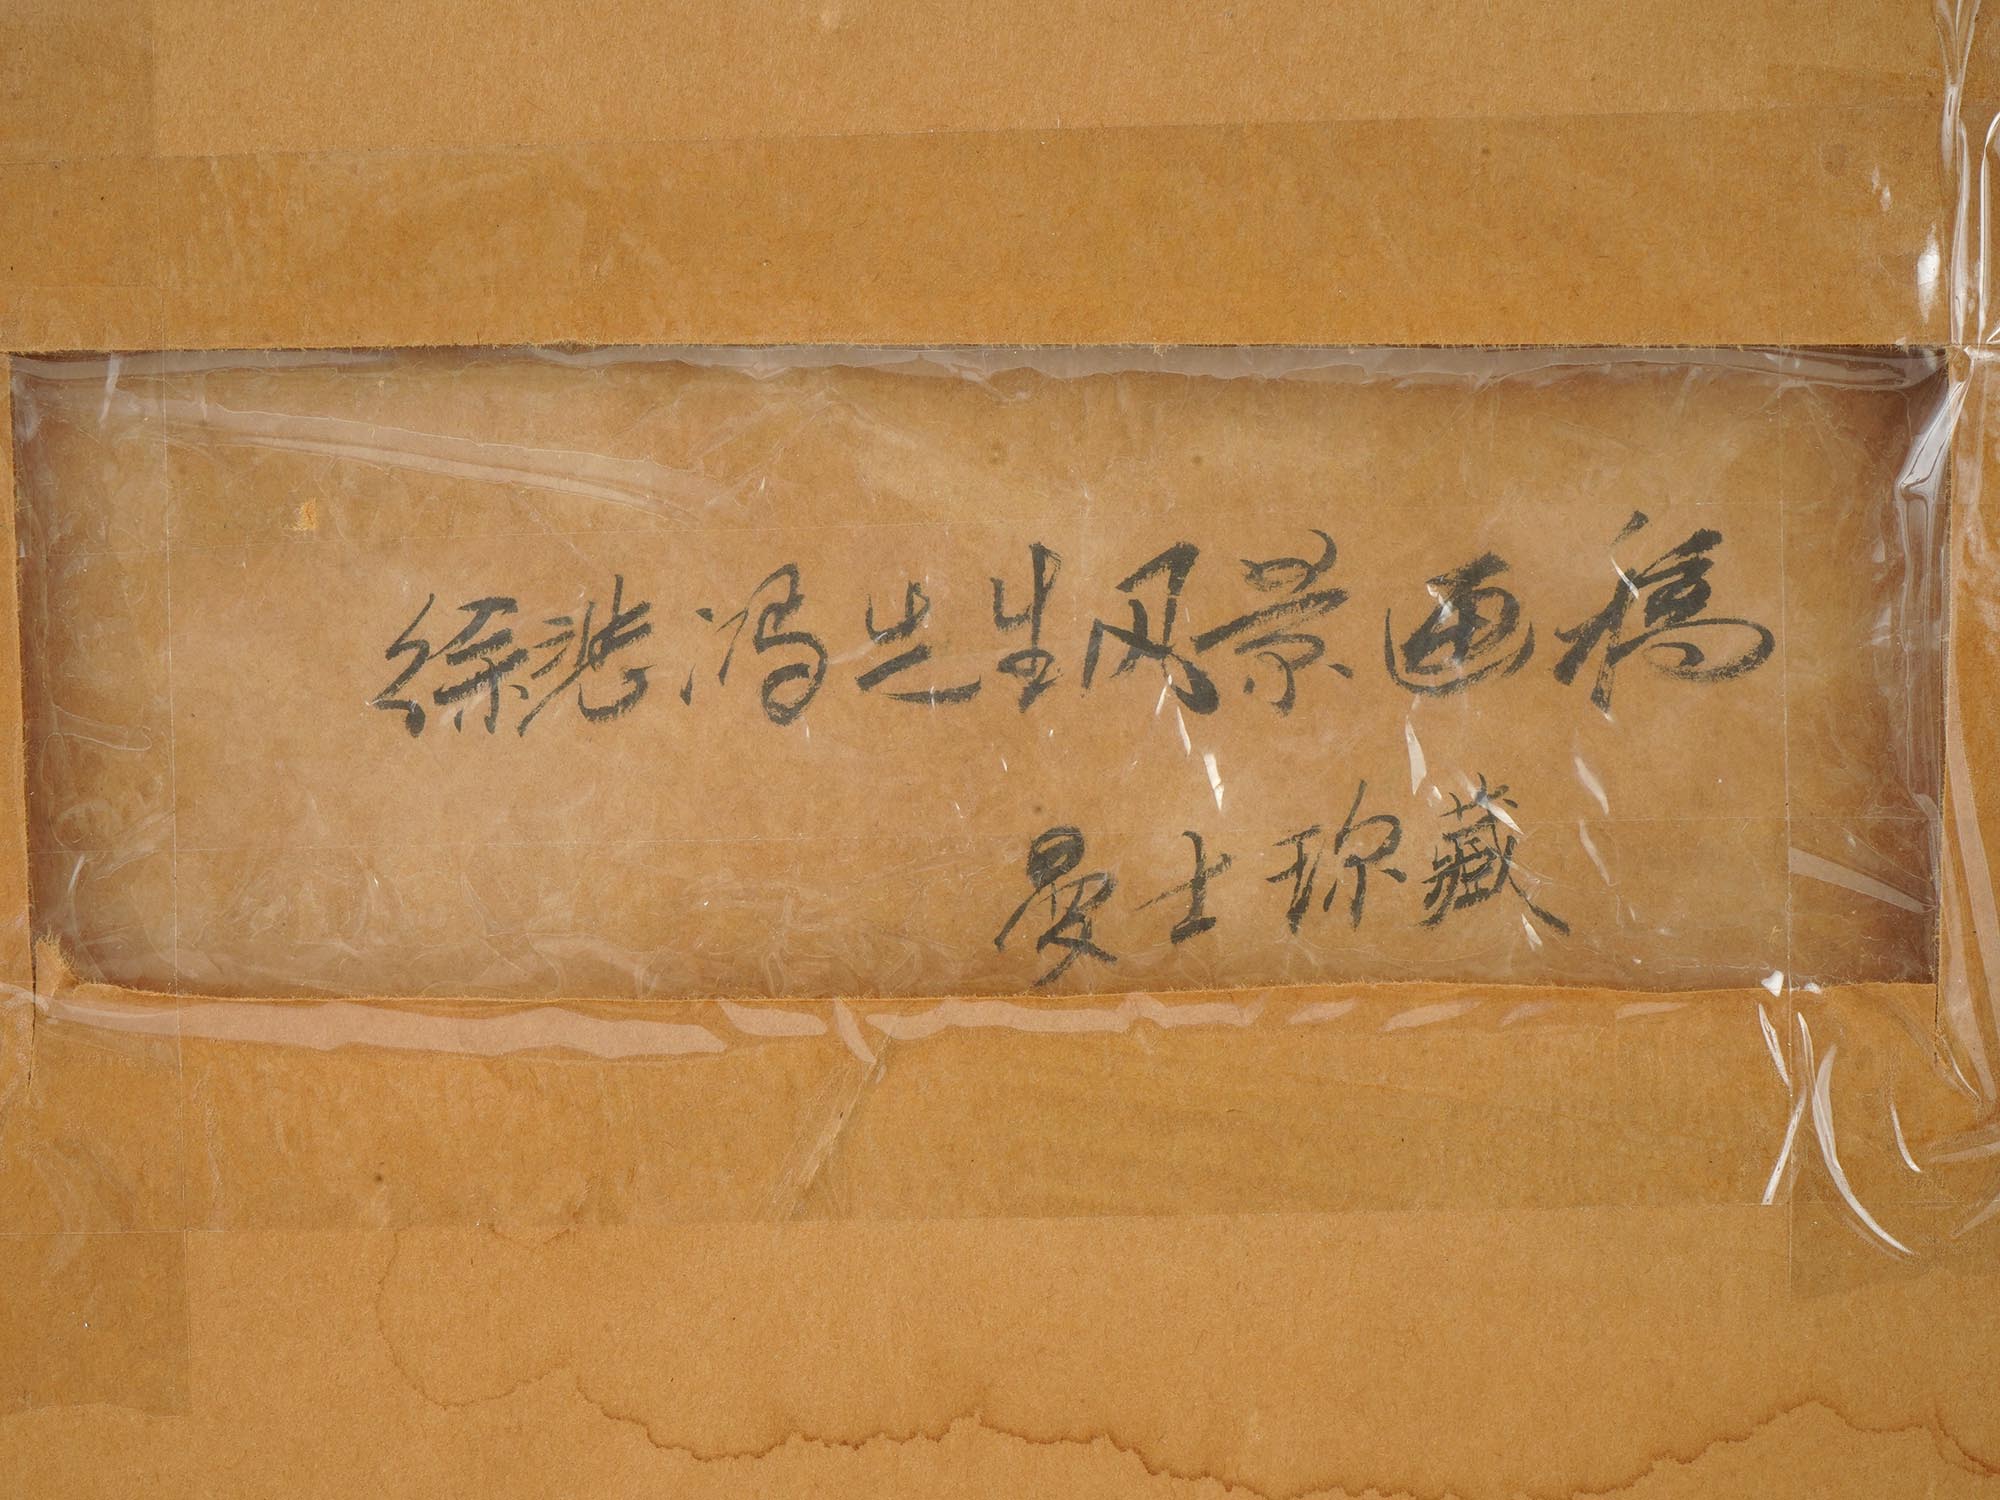 徐悲鸿先生风景画稿
曼士珍藏